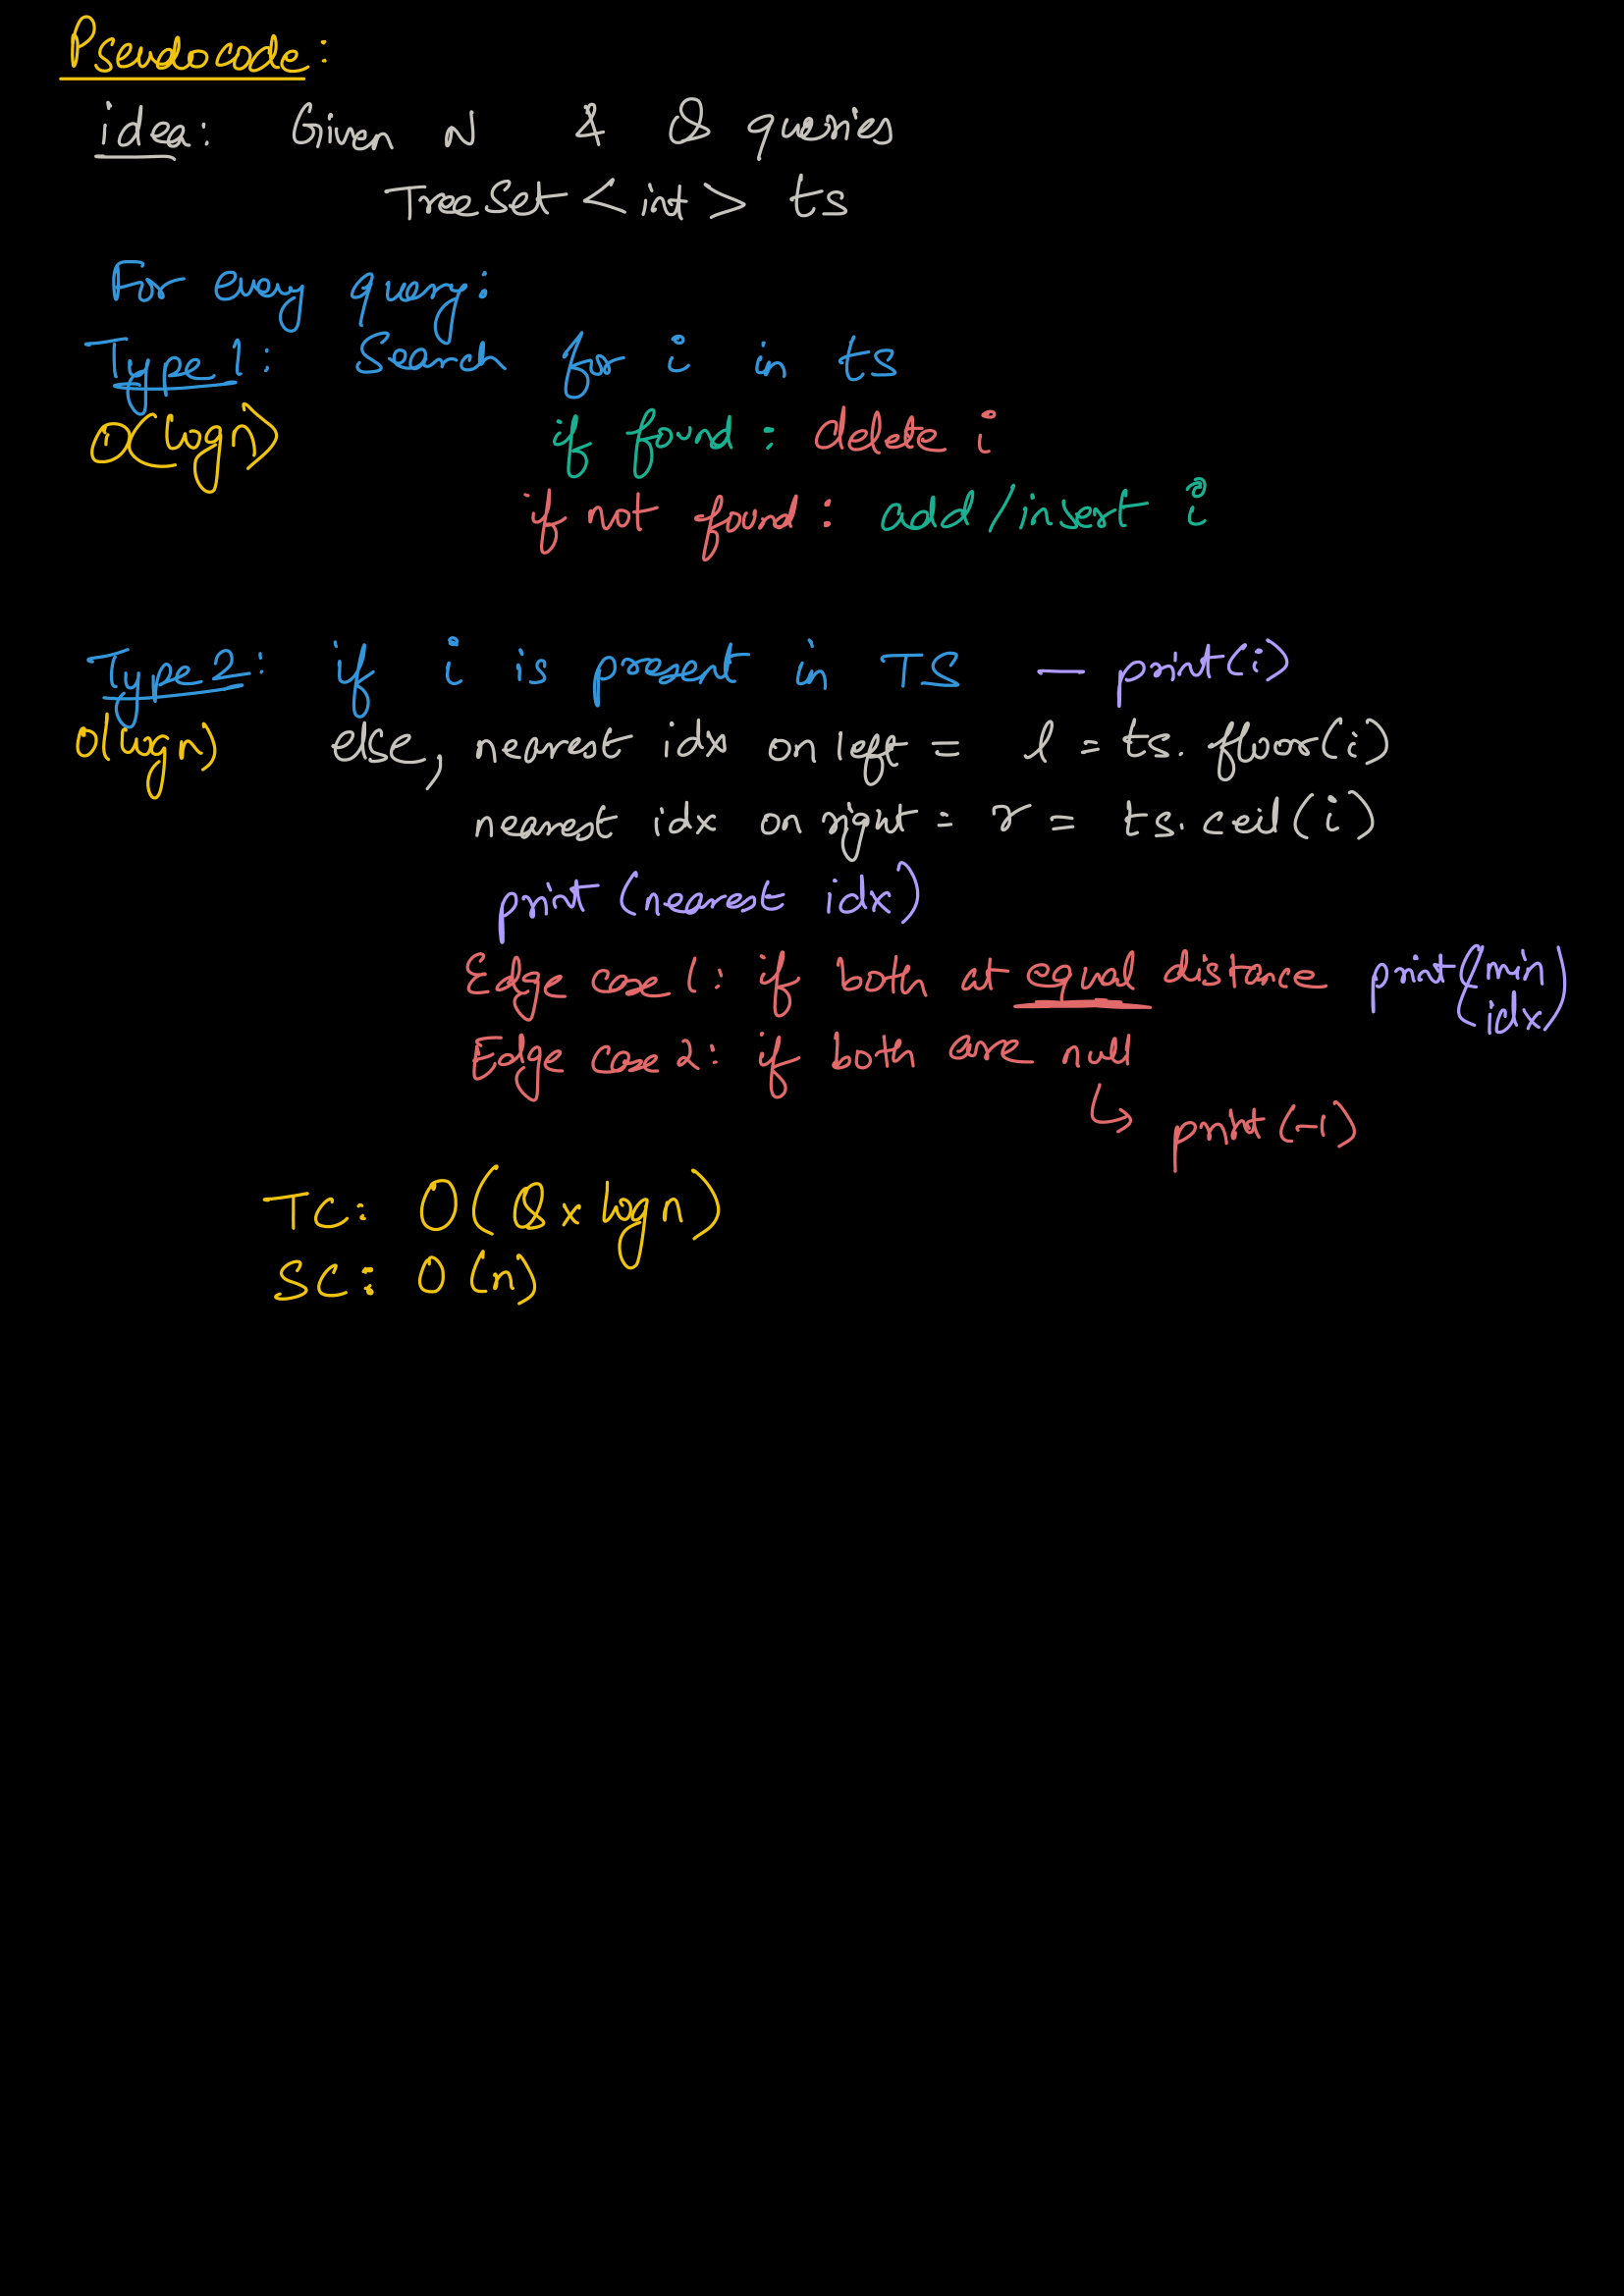 Pseudocode:
idea: Given N & Q queries
TreeSet<int> ts
For every query:
Type 1: Search for i in ts
O(logn)
if found: delete i
if not found: add/insert i
Type 2: if i is present in TS — print(i)
O(logn) else, nearest idx on left = l = ts.floor(i)
nearest idx on right = r = ts.ceil(i)
print (nearest idx)
Edge case 1: if both at equal distance print(min idx)
Edge case 2: if both are null
↳ print(-1)
TC: O(Q x logn)
SC: O(n)